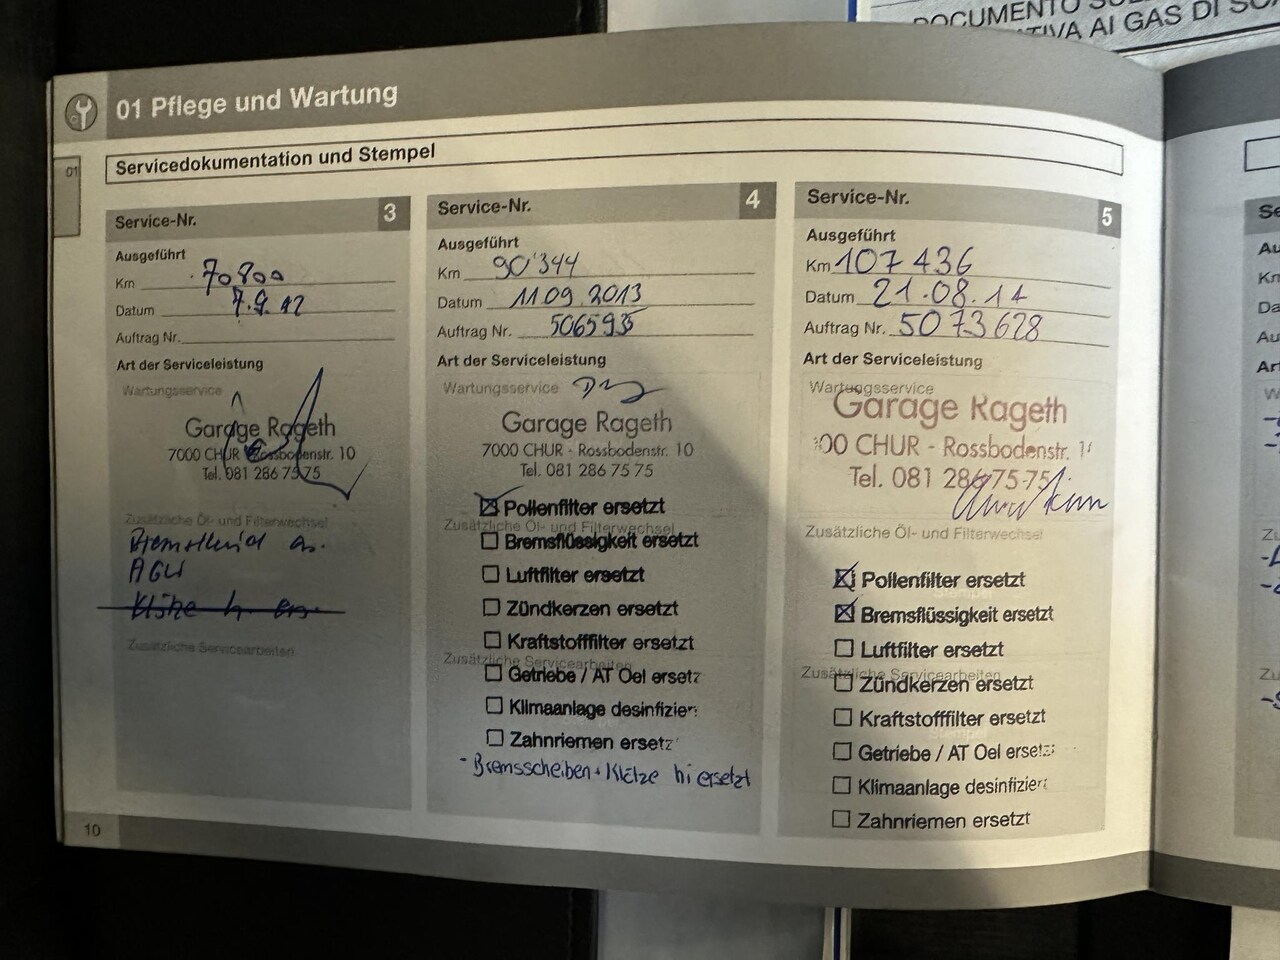 DOCUMENTO
TIVA AI GAS DI
01 Pflege und Wartung
01
Servicedokumentation und Stempel
Service-Nr. 3
Ausgeführt
Km 70800
Datum 7.9.12
Auftrag Nr.
Art der Serviceleistung
Wartungsservice
Garage Rageth
7000 CHUR - Rossbodenstr. 10
Tel. 081 286 75 75
Zusätzliche Öl- und Filterwechsel
AGW
Klötze h. ers.
Zusätzliche Servicearbeiten
10
Service-Nr. 4
Ausgeführt
Km 90'344
Datum 11 09 2013
Auftrag Nr. 5065935
Art der Serviceleistung
Wartungsservice
Garage Rageth
7000 CHUR - Rossbodenstr. 10
Tel. 081 286 75 75
Pollenfilter ersetzt
Zusätzliche Öl- und Filterwechsel
Bremsflüssigkeit ersetzt
Luftfilter ersetzt
Zündkerzen ersetzt
Kraftstofffilter ersetzt
Zusätzliche Servicearbeiten
Getriebe / AT Oel ersetz
Klimaanlage desinfizier
Zahnriemen ersetz
- Bremsscheiben + Klötze hi ersetzt
Service-Nr. 5
Ausgeführt
Km 107 436
Datum 21.08.14
Auftrag Nr. 5073628
Art der Serviceleistung
Wartungsservice
Garage Rageth
00 CHUR - Rossbodenstr. 1
Tel. 081 286 75 75
Zusätzliche Öl- und Filterwechsel
Pollenfilter ersetzt
Stempel
Bremsflüssigkeit ersetzt
Luftfilter ersetzt
Zusätzliche Servicearbeiten
Zündkerzen ersetzt
Kraftstofffilter ersetzt
Stempel
Getriebe / AT Oel ersetz
Klimaanlage desinfizier
Zahnriemen ersetzt